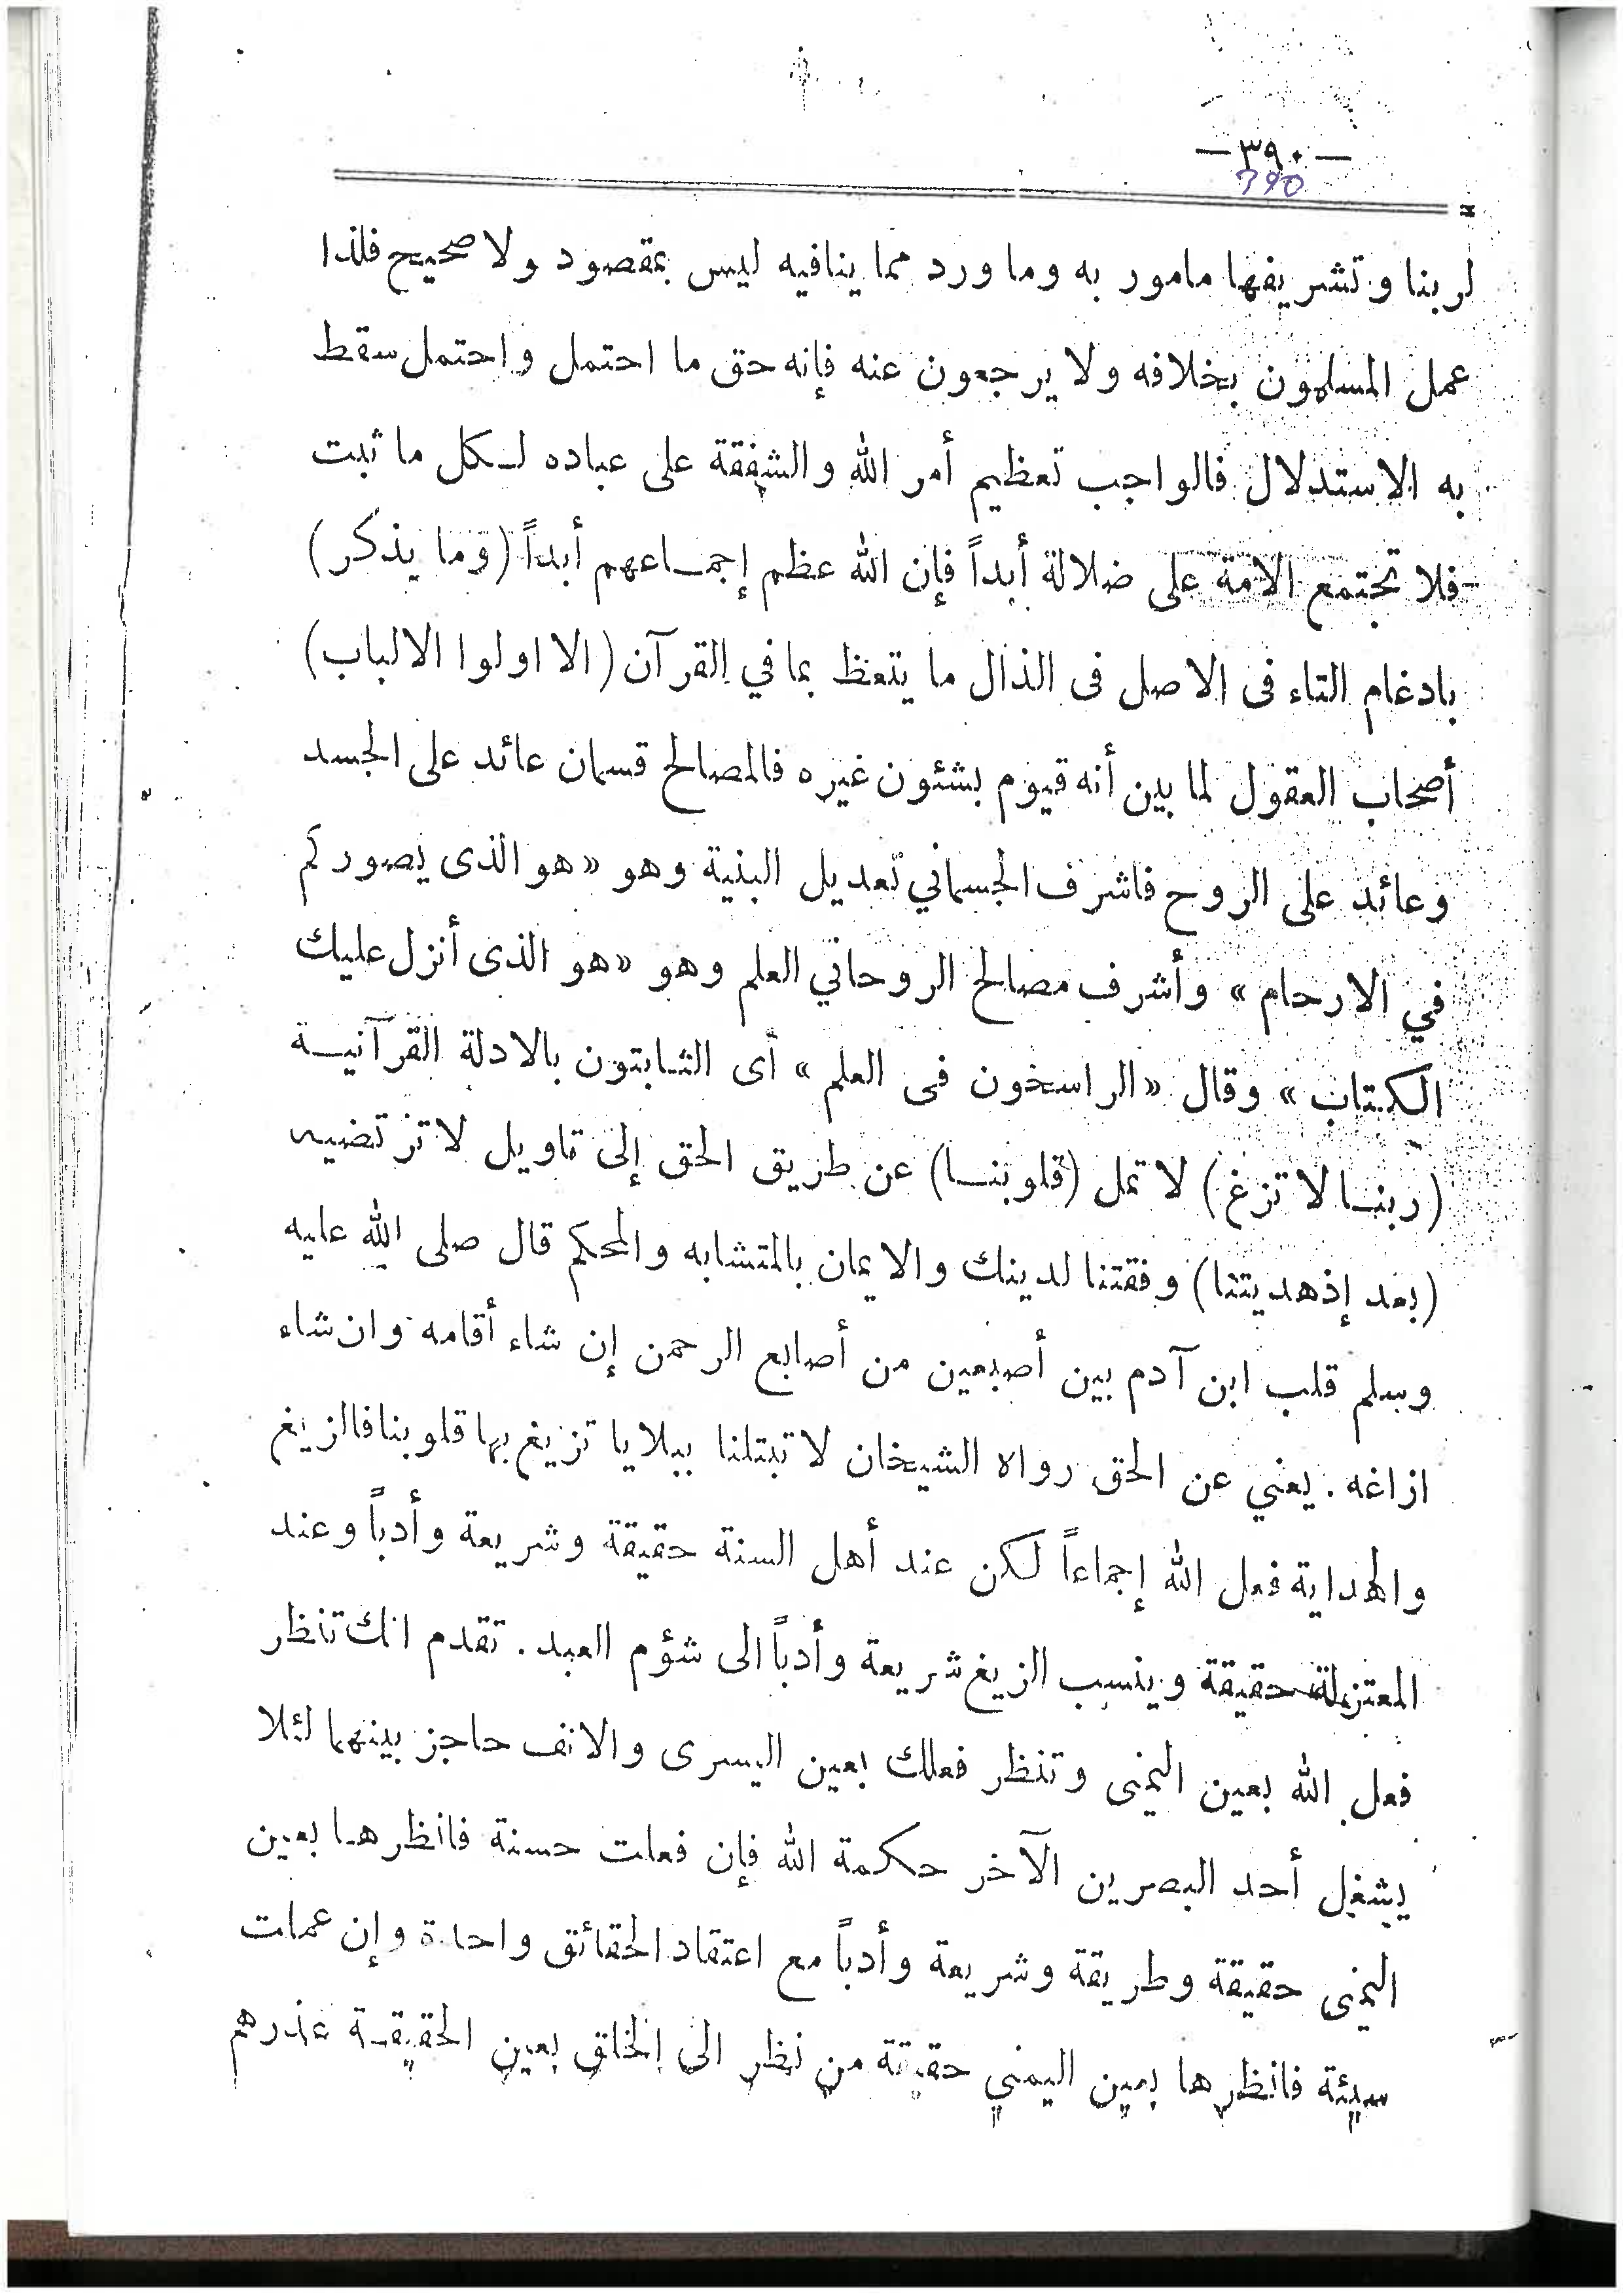 — ٣٩٠ —
390
لربنا وتشريفها مامور به وما ورد مما ينافيه ليس بمقصود ولا صحيح فلذا
عمل المسلمون بخلافه ولا يرجعون عنه فإنه حق ما احتمل واحتمل سقط
به الاستدلال فالواجب تعظيم أمر الله والشفقة على عباده لكل ما ثبت
فلا تجتمع الامة على ضلالة أبداً فإن الله عظم إجماعهم أبداً (وما يذكر)
بادغام التاء فى الاصل فى الذال ما يتعظ بما في القرآن (الا اولوا الالباب)
أصحاب العقول لما بين أنه قيوم بشئون غيره فالمصالح قسمان عائد على الجسد
وعائد على الروح فاشرف الجسماني تعديل البنية وهو «هو الذى يصوركم
في الارحام» وأشرف مصالح الروحاني العلم وهو «هو الذى أنزل عليك
الكتاب» وقال «الراسخون فى العلم» أى الثابتون بالادلة القرآنية
(ربنا لا تزغ) لا تمل (قلوبنا) عن طريق الحق إلى تاويل لا ترتضيه
(بعد إذ هديتنا) وفقتنا لدينك والايمان بالمتشابه والمحكم قال صلى الله عليه
وسلم قلب ابن آدم بين أصبعين من أصابع الرحمن إن شاء أقامه وان شاء
ازاغه . يعني عن الحق رواه الشيخان لا تبتلنا ببلايا تزيغ بها قلوبنا فالزيغ
والهداية فعل الله إجماعاً لكن عند أهل السنة حقيقة وشريعة وأدباً وعند
المعتزلة حقيقة وينسب الزيغ شريعة وأدباً الى شؤم العبد . تقدم انك تنظر
فعل الله بعين اليمنى وتنظر فعلك بعين اليسرى والانف حاجز بينهما لئلا
يشغل أحد البصرين الآخر حكمة الله فإن فعلت حسنة فانظرها بعين
اليمنى حقيقة وطريقة وشريعة وأدباً مع اعتقاد الحقائق واحدة وإن عملت
سيئة فانظرها بعين اليمني حقيقة من نظر الى الخلق بعين الحقيقة عذرهم